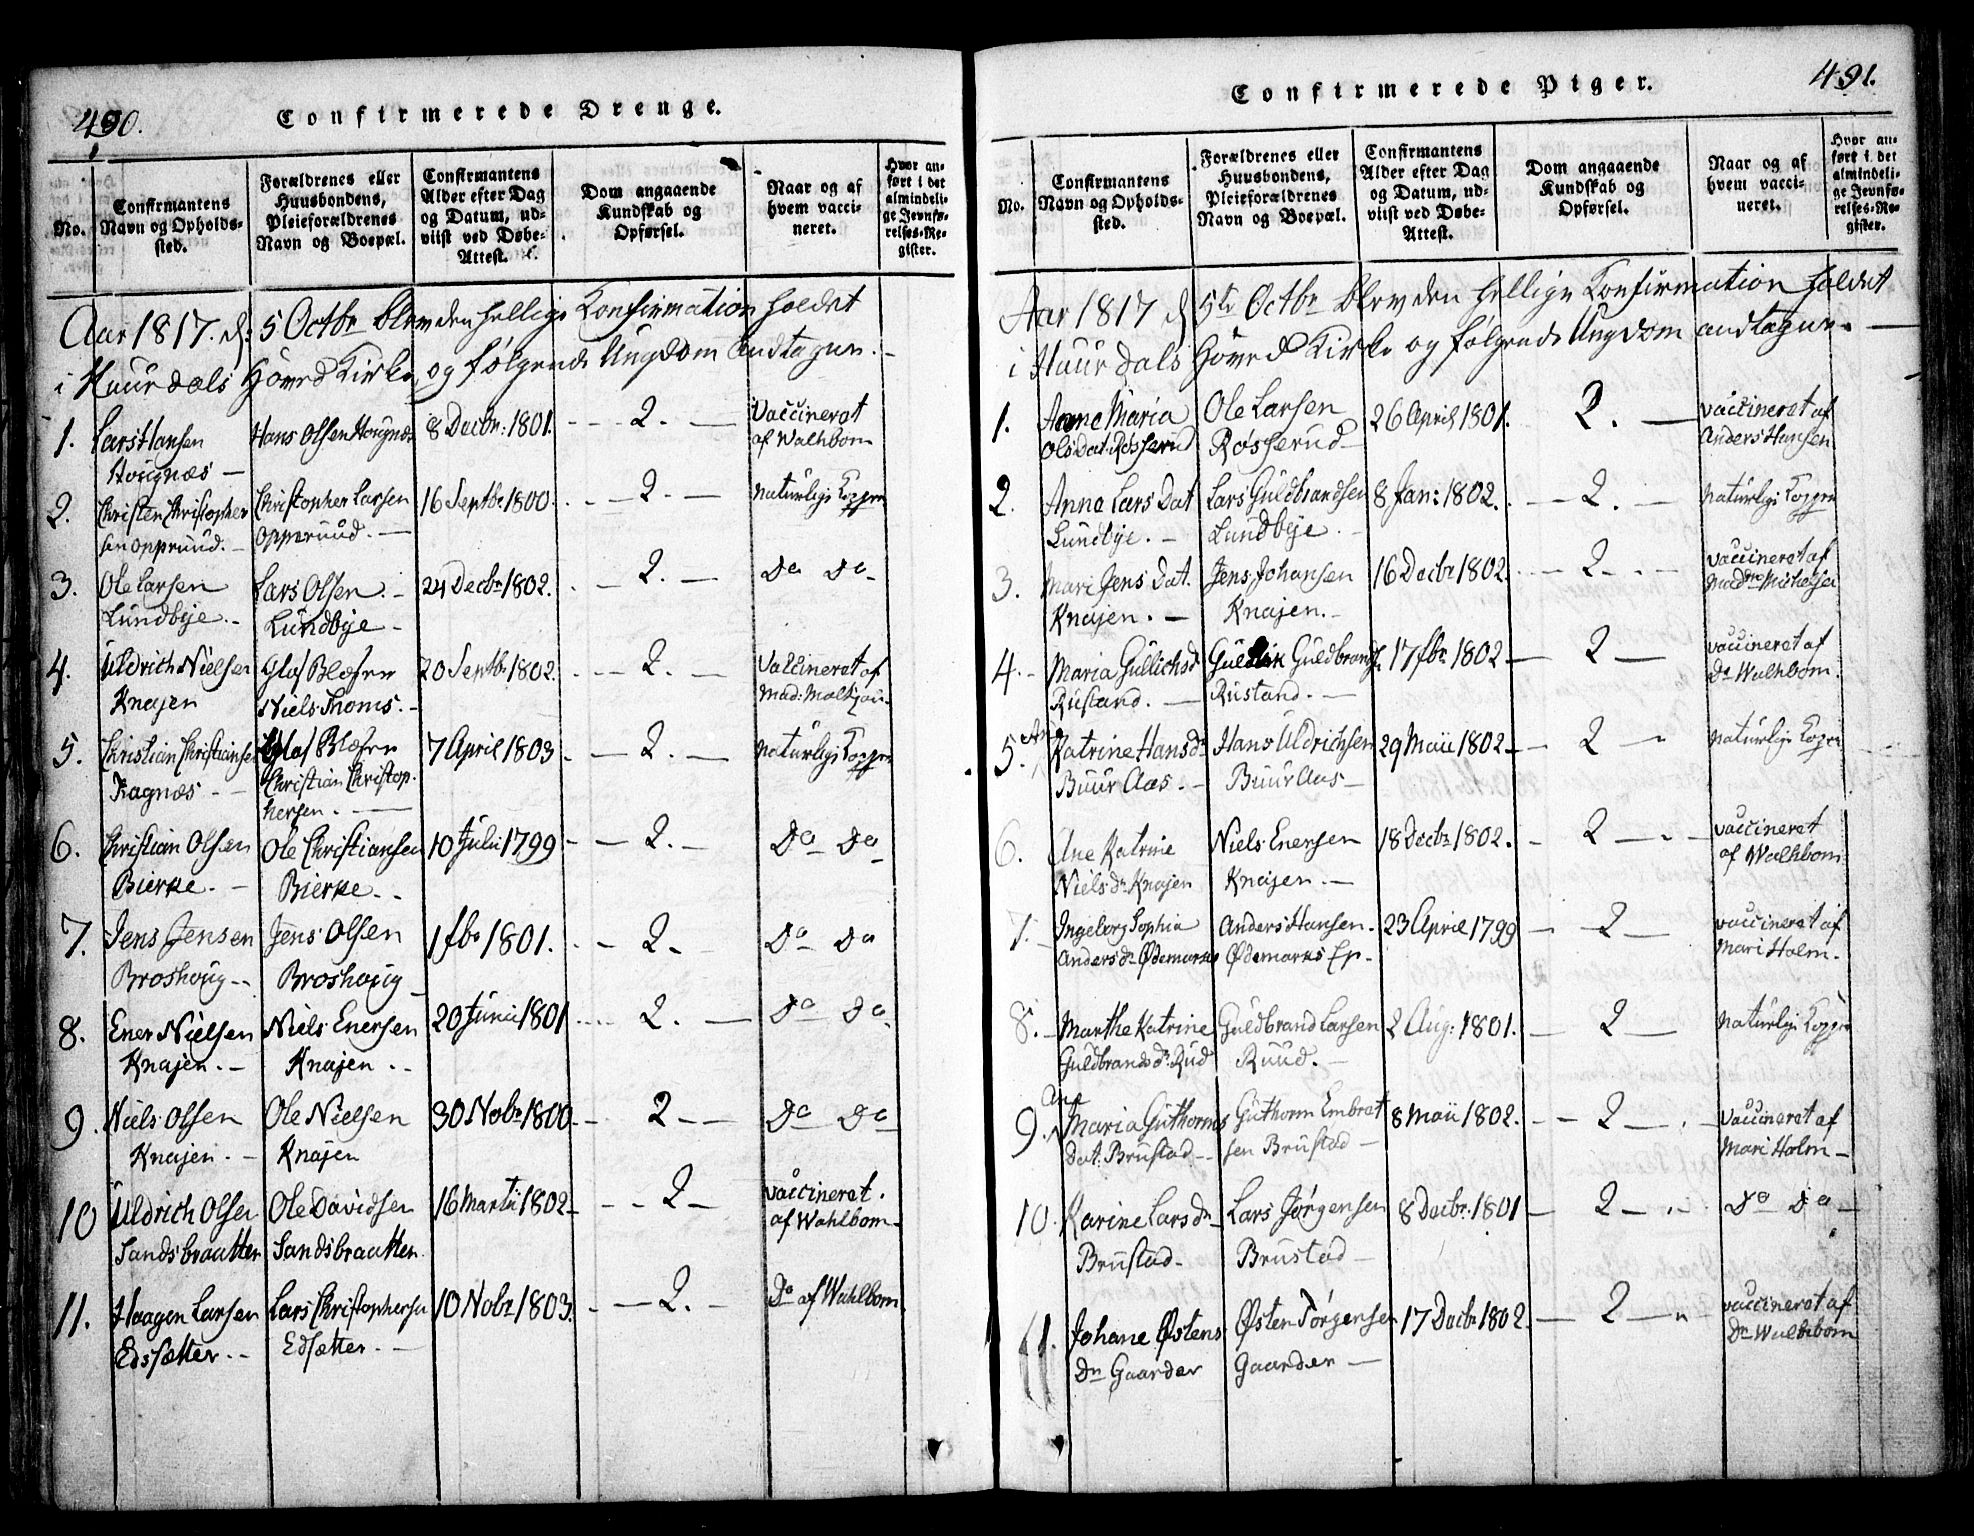 490.
Confirmerede Drenge.
No.
Confirmantens Navn og Opholds-sted.
Forældrenes eller Huusbondens, Pleieforældrenes Navn og Boepæl.
Confirmantens Alder efter Dag og Datum, ud-viist ved Døbe-Attest.
Dom angaaende Kundskab og Opførsel.
Naar og af hvem vacci-neret.
Hvor an-ført i det almindeli-ge Jevnfø-relses-Re-gister.
Aar 1817. d: 5 Octbr blev den hellige Confirmation holdet
i Huurdals Hoved Kirke, og følgende Ungdom andtagen. -
1. Lars Hansen Hans Olsen Hougnæs 8 Decbr: 1801. - - - 2. - Vaccineret
Hougnæs - af Walhbom
2. Christen Christopher Christopher Larsen 16 Septbr 1800. - - 2. - naturlige Kopper
sen Opperuud. - Opperuud. -
3. Ole Larsen Lars Olsen. - 24 Decbr 1802. - - 2. - Do Do -
Lundbye. - Lundbye -
4. Uldrich Nielsen Glas Blæser 20 Septbr 1802. - - 2. - Vaccineret af
Knajen Niels Thoms. - Mad:
5. Christian Christiansen Glas Blæser 7 April 1803 - - 2. - naturlige Kopper
Ragnæs - - Christian Christop-
hersen. -
6. Christian Olsen Ole Christiansen 10 Julii 1799 - - 2. - Do Do
Bierke. - Bierke. -
7. Jens Jensen Jens Olsen 1 fbr 1801. - - 2 - Do Do
Broshoug - - Broshoug -
8. Ener Nielsen Niels Enersen 20 Junii 1801 - - 2. - Do Do
Knajen. - Knajen. -
9. Niels Olsen Ole Nielsen 30 Nobr 1800 - - 2 - - Do Do
Knajen. - Knajen
10 Uldrich Olsen Ole Davidsen 16 Martii 1802 - - - 2 - vaccineret.
Sandsbraatten Sandsbraatten. af Wahlbom -
11. Haagen Larsen Lars Christophersen 10 Nobr 1803. - - 2. - Do af Wahlbom
Edssætter. - Edsætter. -
491.
Confirmerede Piger.
No.
Confirmantens Navn og Opholds-sted.
Forældrenes eller Huusbondens, Pleieforældrenes Navn og Boepæl.
Confirmantens Alder efter Dag og Datum, ud-viist ved Døbe-Attest.
Dom angaaende Kundskab og Opførsel.
Naar og af hvem vacci-neret.
Hvor an-ført i det almindeli-ge Jevnfø-relses-Re-gister.
Aar 1817 d 5te Octbr blev den hellige Confirmation holdet
i Huurdals Hoved Kirke og følgende Ungdom andtagen. -
1. Anne Maria Ole Larsen 26 April 1801. 2. - vaccineret af
Olsdat: Røsserud Røsserud Anders Hansen
2. Anne Lars Dat Lars Guldbrandsen 8 Jan: 1802. - - 2. - naturlige Kopper
Lundbye. - Lundbye. -
3. Mari Jens Dat. Jens Johansen 16 Decbr 1802. - - 2 - - vaccineret af
Knajen. - Knajen. - Madme Michelsen
4. - Maria Gullichsd Guldbrands. 17 fbr 1802 - 2 - vaccineret af
Rustand. - Rustand. - Dr Walhbom.
5. Ane
Katrine Hansdr Hans Uldrichsen 29 Maii 1802 - 2 - naturlige Kopper
Buuraas. - Buuraas -
6. Ane Katrine Niels Enersen 18 Decbr 1802. - 2 - - vaccineret
Nielsdr Knajen Knajen. - af Walhbom
7. - Ingeborg Sophia Anders Hansen. 23 April 1799 - 2 - vaccineret af
Andersdr Ødemarks Ødemarks Ep. Mari Holm. -
8. - Marthe Katrine Guldbrand Larsen 2 Aug: 1801. - 2 - naturlige Kopper
Guldbrandsdr. Rud Ruud. -
9. Ane
Maria Guthorms Guthorm Embret 8 Maii 1802. - - 2 - - vaccineret af
Dat. Brustad - - sen Brustad - Mari Holm -
10. Karine Larsdr - Lars Jørgensen 8 Decbr. 1801 - 2 - - Do Do -
Brustad - Brustad -
11. Johane Østens Østen Jørgensen 17 Decbr 1802. - 2 - vaccineret af
Dr Gaarder Gaarder - Dr Walhbom